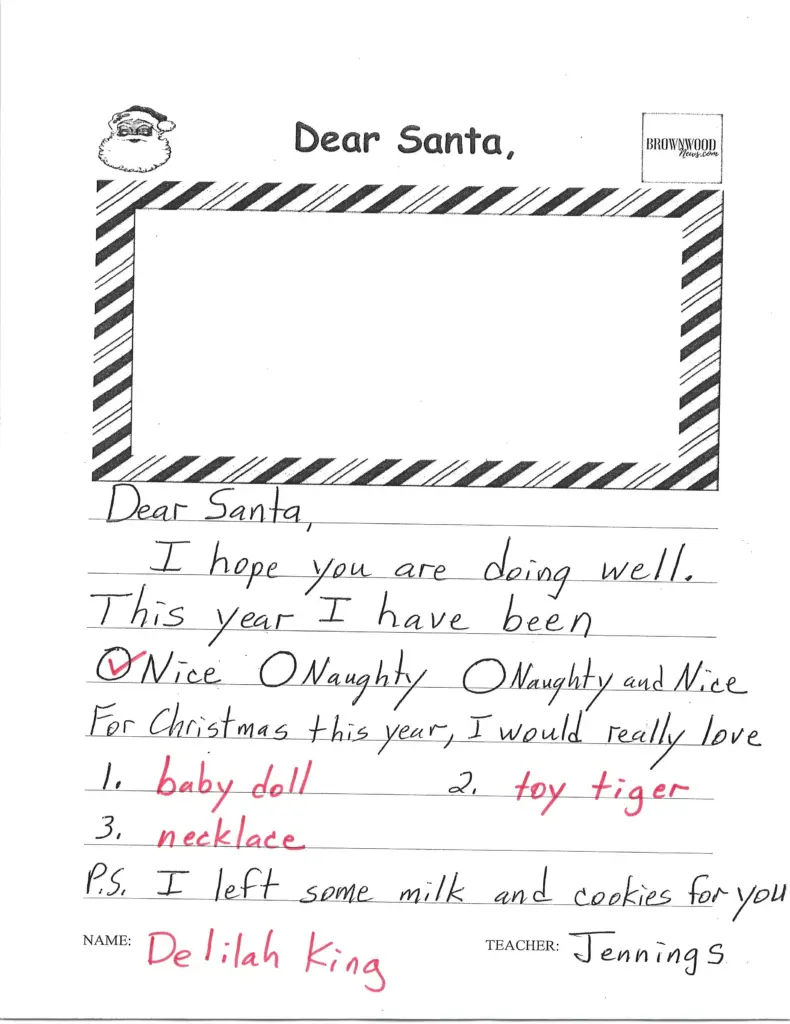 Dear Santa,
BROWNWOOD
News.com
Dear Santa,
I hope you are doing well.
This year I have been
Nice Naughty Naughty and Nice
For Christmas this year, I would really love
1. baby doll 2. toy tiger
3. necklace
P.S. I left some milk and cookies for you
NAME: Delilah King TEACHER: Jennings